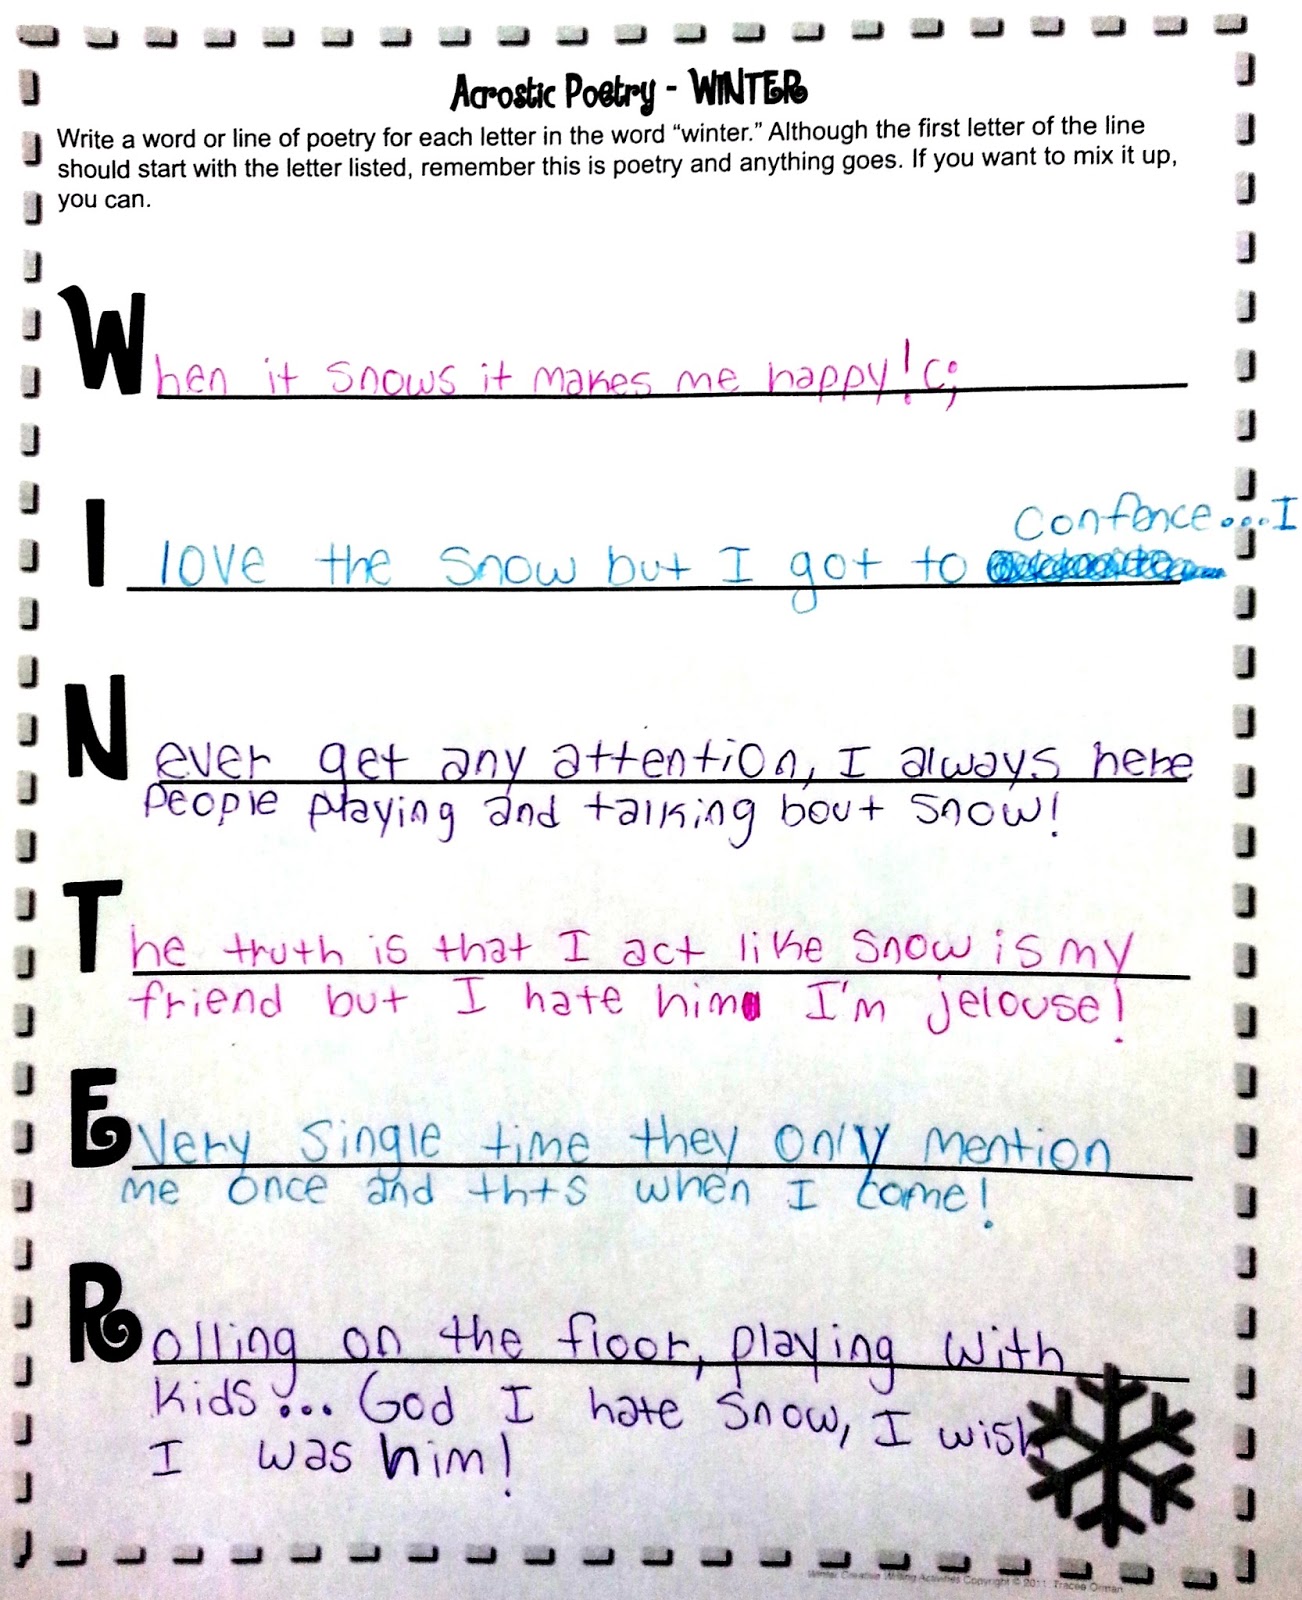 Acrostic Poetry - WINTER
Write a word or line of poetry for each letter in the word “winter.” Although the first letter of the line
should start with the letter listed, remember this is poetry and anything goes. If you want to mix it up,
you can.
When it snows it makes me happy! c;
Confence...I
I love the snow but I got to
Never get any attention, I always here
people playing and talking bout snow!
The truth is that I act like snow is my
friend but I hate him I'm jelouse!
Every single time they only mention
me once and thts when I come!
Rolling on the floor, playing with
kids... God I hate snow, I wish
I was him!
Winter Creative Writing Activities Copyright © 2011 Tracee Orman